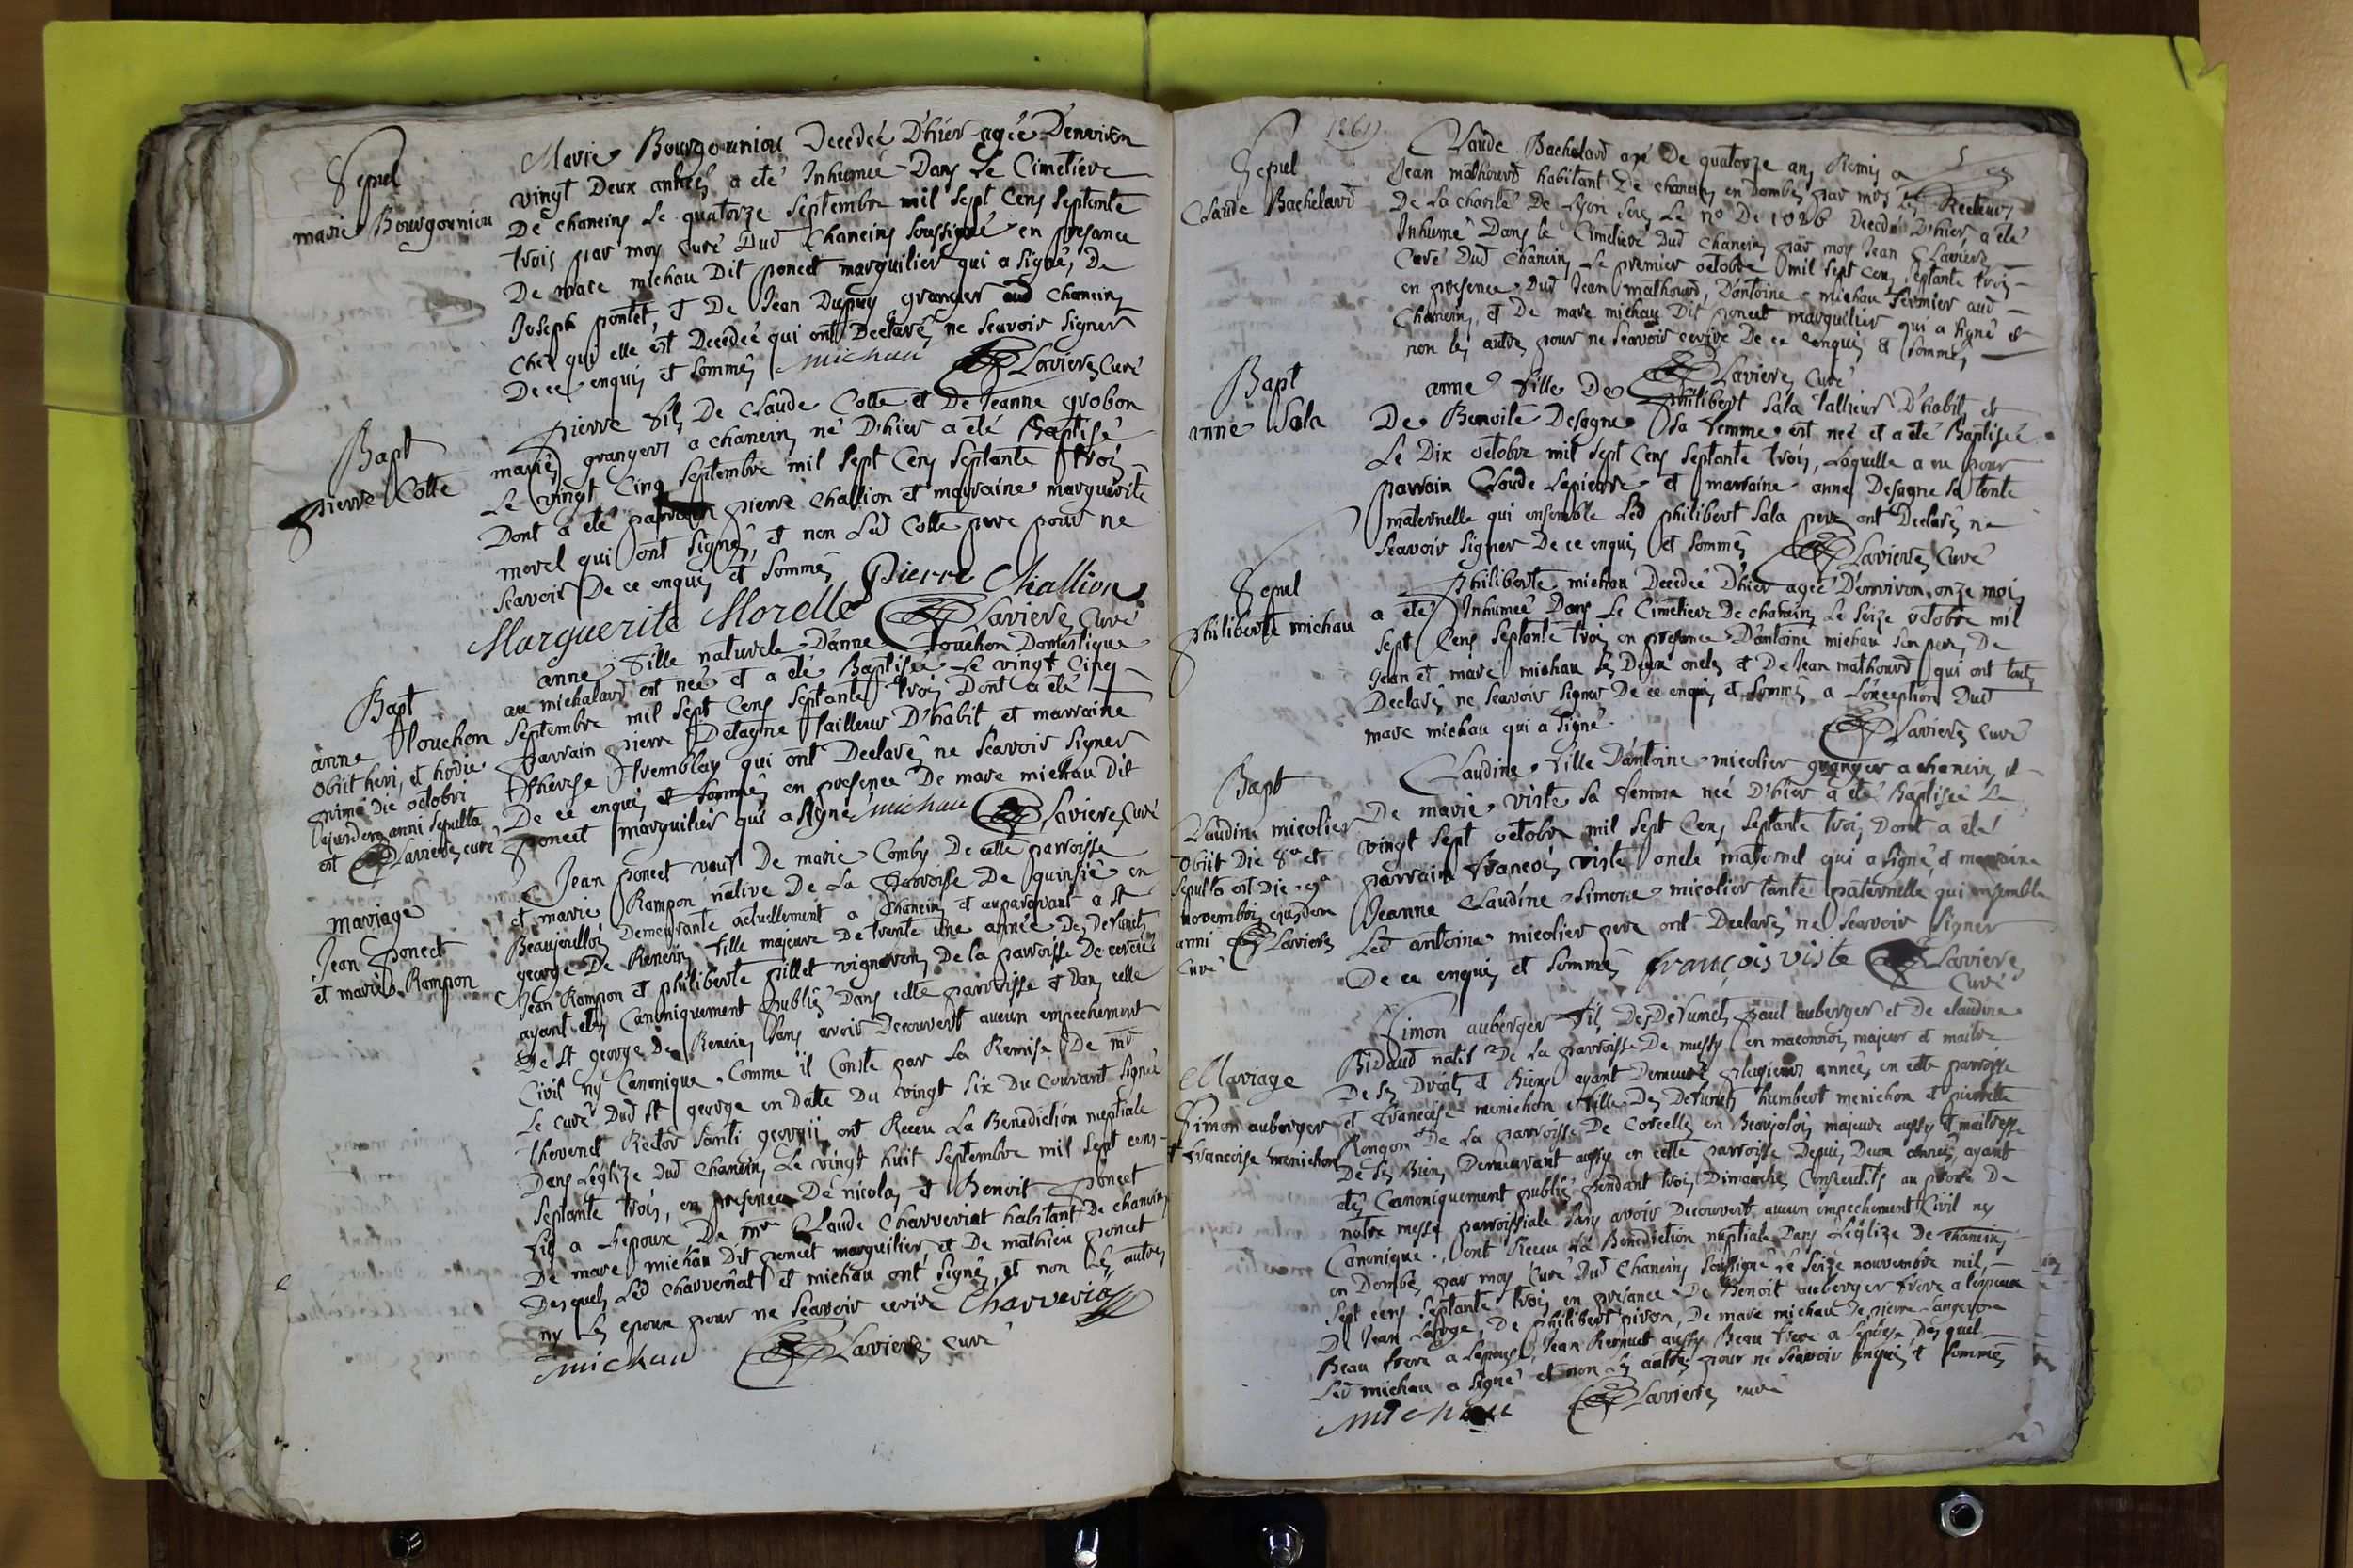 Sepul
marie Bourgouniou
Marie Bourgouniou Decedée D'hier agée D'environ
vingt Deux années a eté Inhumée Dans Le Cimetiere
De chaneins Le quatorze Septembre mil Sept Cens Septante
trois par moy Curé Dud Chaneins Soussigné en presance
De marc michau Dit poncet marguilier qui a signé, De
Joseph pontet, et De Jean Dupuy granger aud Chaneins
Chez qui elle est Decedée qui ont Declaré ne Scavoir Signer
De ce enquis et Sommés michau Lavieres Curé
Bapt
pierre Cotte
pierre fils De Claude Cotte et De Jeanne grobon
mariés grangers a chaneins né D'hier a eté Baptisé
Le vingt Cinq Septembre mil Sept Cens Septante trois
Dont a eté parrain pierre Challion et marraine marguerite
morel qui ont signés, et non Led Cotte pere pour ne
Scavoir De ce enquis et Sommés Pierre Challion
Marguerite Morelle Lavieres Curé
Bapt
anne Touchon
obiit heri, et hodie
prima Die octobri
ejusdem anni Sepulta
est Lavieres curé
anne fille naturele D'anne Touchon Domestique
au michalard est née et a eté Baptisée Le vingt Cinq
Septembre mil Sept Cens Septante trois Dont a eté
parrain pierre Detagne tailleur D'habit et marraine
Therese Tremblay qui ont Declaré ne Scavoir Signer
De ce enquis et Sommés en presence De marc michau dit
poncet marguilier qui a signé michau Lavieres Curé
mariage
Jean poncet
et marie Rampon
Jean poncet veuf De marie Comby De cette parroisse
et marie Rampon native De La parroisse De quinsié en
Beaujoullois Demeurante actuellement a Chaneins et auparavant a St
george De Reneins fille majeure De trente une année Des Defunts
Jean Rampon et philiberte pillet vignerons De la parroisse De cercié
ayant etés Canoniquement publiés Dans cette parroisse et Dans celle
De St george De Reneins Sans avoir Decouvert aucun empechement
Civil ny Canonique. Comme il Conste par La Remise De mr
Le curé Dud St george en Datte Du vingt Six Du Courant Signée
thevenet Rector Sancti georgii ont Receu La Benediction nuptiale
Dans Leglize Dud Chaneins Le vingt huit Septembre mil Sept cens
Septante trois, en presence De nicolas et Benoit poncet
fils a Lepoux De mre Claude Charveriat habitant De chaneins
De marc michau Dit poncet marguilier, et De mathieu poncet
Desquels Led Charveriat et michau ont signés, et non Les autres
ny Les epoux pour ne Scavoir ecrire Charveriat
michau Lavieres curé
1261
5
Sepul
Claude Bachelard
Claude Bachelard agé De quatorze ans Remis a
Jean mathourd habitant De chaneins en Dombes par mrs Les Recteurs
De La charité De Lyon Sous Le no De 1026 Decedé D'hier a eté
Inhumé Dans Le Cimetiere Dud chaneins par moy Jean Lavieres
Curé Dud Chaneins Le premier octobre mil Sept Cens Septante trois
en presence Dud Jean mathourd, D'antoine michau fermier aud
Chaneins, et De marc michau Dit poncet marguilier qui a signé et
non les autres pour ne Scavoir ecrire De ce enquis et Sommés
Lavieres Curé
Bapt
anne Sala
anne fille De philibert Sala tallieur D'habit et
De Benoite Desagne Sa femme est née et a eté Baptisée
Le Dix octobre mil Sept Cens Septante trois, Laquelle a eu pour
parrain Claude Lapierre et marraine anne Desagne Sa tente
maternelle qui ensemble Led philibert Sala pere ont Declarés ne
Scavoir Signer De ce enquis et Sommés Lavieres Curé
Sepul
philiberte michau
philiberte michau Decedée D'hier agée D'environ onze mois
a eté Inhumée Dans Le Cimetiere De chaneins Le Seize octobre mil
Sept Cens Septante trois en presence D'antoine michau Son pere, De
Jean et marc michau Ses Deux oncles et De Jean mathourd qui ont touts
Declarés ne Scavoir Signer De ce enquis et Sommés a L'exception Dud
marc michau qui a signé. Lavieres curé
Bapt
Claudine micolier
obiit Die 8a et
Sepulta est Die 9a
novembris ejusdem
anni Lavieres
Curé
Claudine fille D'antoine micolier granger a chaneins et
De marie viste Sa femme née D'hier a eté Baptisée Le
vingt Sept octobre mil Sept Cens Septante trois Dont a eté
parrain francois viste oncle maternel qui a signé, et marraine
Jeanne Claudine Simone micolier tante paternelle qui ensemble
Led antoine micolier pere ont Declarés ne Scavoir Signer
De ce enquis et Sommés françois viste Lavieres
Curé
Mariage
Simon auberger
et francoise menichon
Simon auberger fils Des Defunts paul auberger et De claudine
Bidaud natif De La parroisse De mussy en maconnois majeur et maitre
De Ses Droits et Biens ayant Demeuré plusieurs années en cette parroisse
et francoise menichon fille Des Defunts humbert menichon et pierrette
Rongon De La parroisse De Corcelles en Beaujolois majeure aussy et maitresse
De Ses Biens Demeurant aussy en cette parroisse Depuis Deux années, ayant
etés Canoniquement publiés pendant trois Dimanches Consecutifs au prone De
notre messe parroissiale Sans avoir Decouvert aucun empechement Civil ny
Canonique. ont Receu La Benediction nuptiale Dans Leglize De Chaneins
en Dombes par moy Curé Dud Chaneins Soussigné Le Seize nouvembre mil
Sept cens Septante trois en presance De Benoit auberger frere a lepoux
De Jean Laforge, De philibert pivon, De marc michau De pierre angeron
Beau frere a Lepouse, Jean Revouet aussy Beau frere a Lepouse Des quels
Led michau a signé et non Les autres pour ne Scavoir enquis et Sommés
michau Lavieres curé